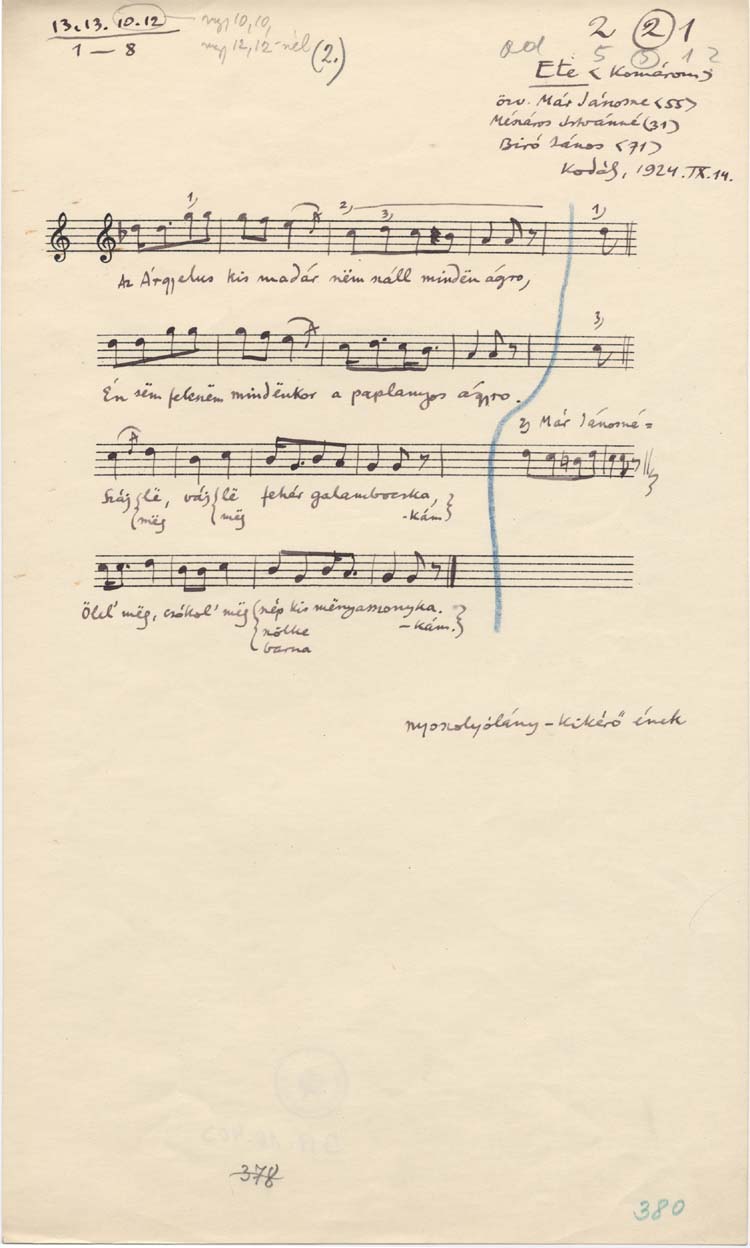 13. 13. 10. 12
1 — 8
10, 10,
12, 12-nél (2.)
2 2 1
5 5 1 2
Ete (Komárom)
özv. Már Jánosné (55)
Mészáros Istvánné (31)
Biró János (71)
Kodály, 1924. IX. 14.
1, 2, 3, 1)
Az Árgyelus kis madár nëm száll mindën ágro,
3,
Én sëm fekszëm mindënkor a paplanyos ágyro.
2, Már Jánosné =
Szájjlë, vájjlë fehér galambocska,
mëg mëg -kám
Ölel' mëg, csókol' mëg szép kis mënyasszonyka.
szőke -kám.
barna
nyoszolyólány-kikérő ének
378
380